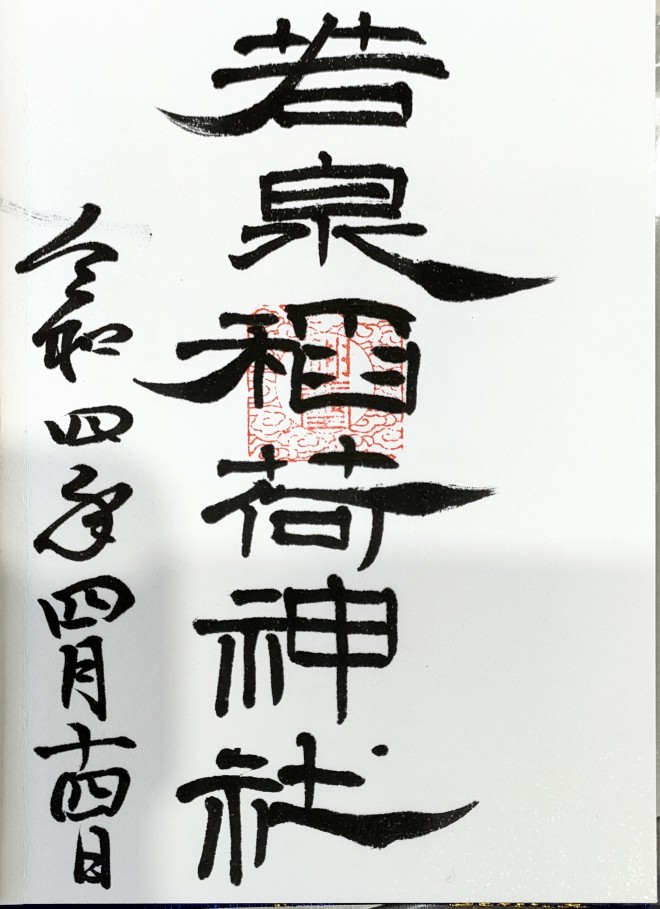 若泉稲荷神社
令和四年四月十四日